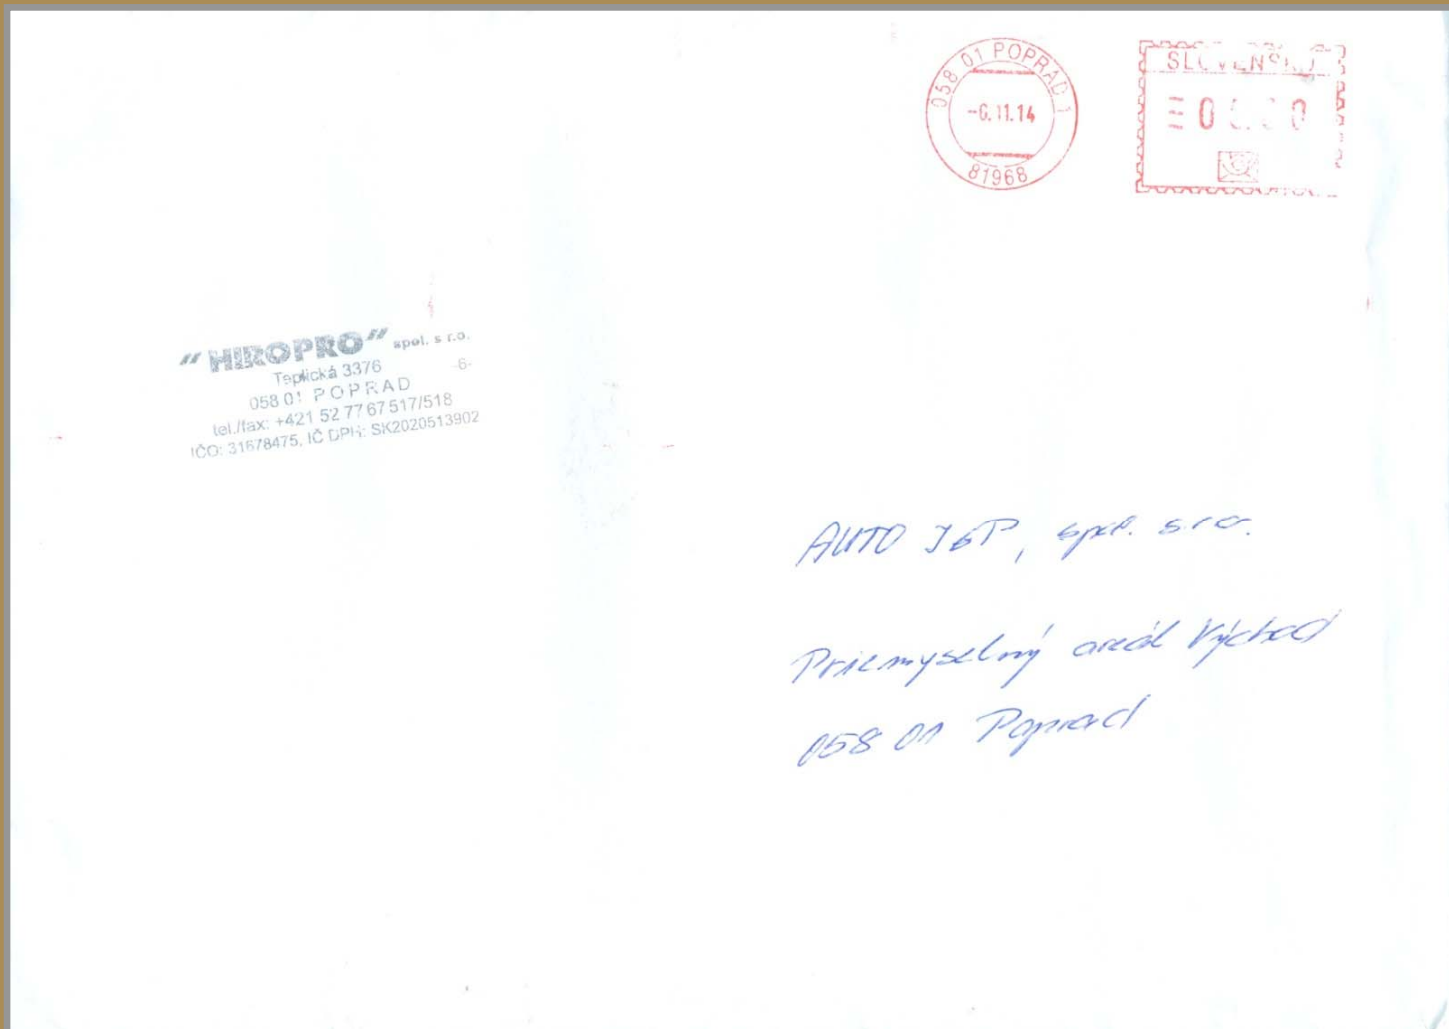 058 01 POPRAD 1
-6.11.14
81968
SLOVENSKO
"HIROPRO" spol. s r.o.
Teplická 3376 -6-
058 01 POPRAD
tel./fax: +421 52 77 67 517/518
IČO: 31678475, IČ DPH: SK2020513902
AUTO , spol. s r.o.
Priemyselný areál Východ
058 01 Poprad